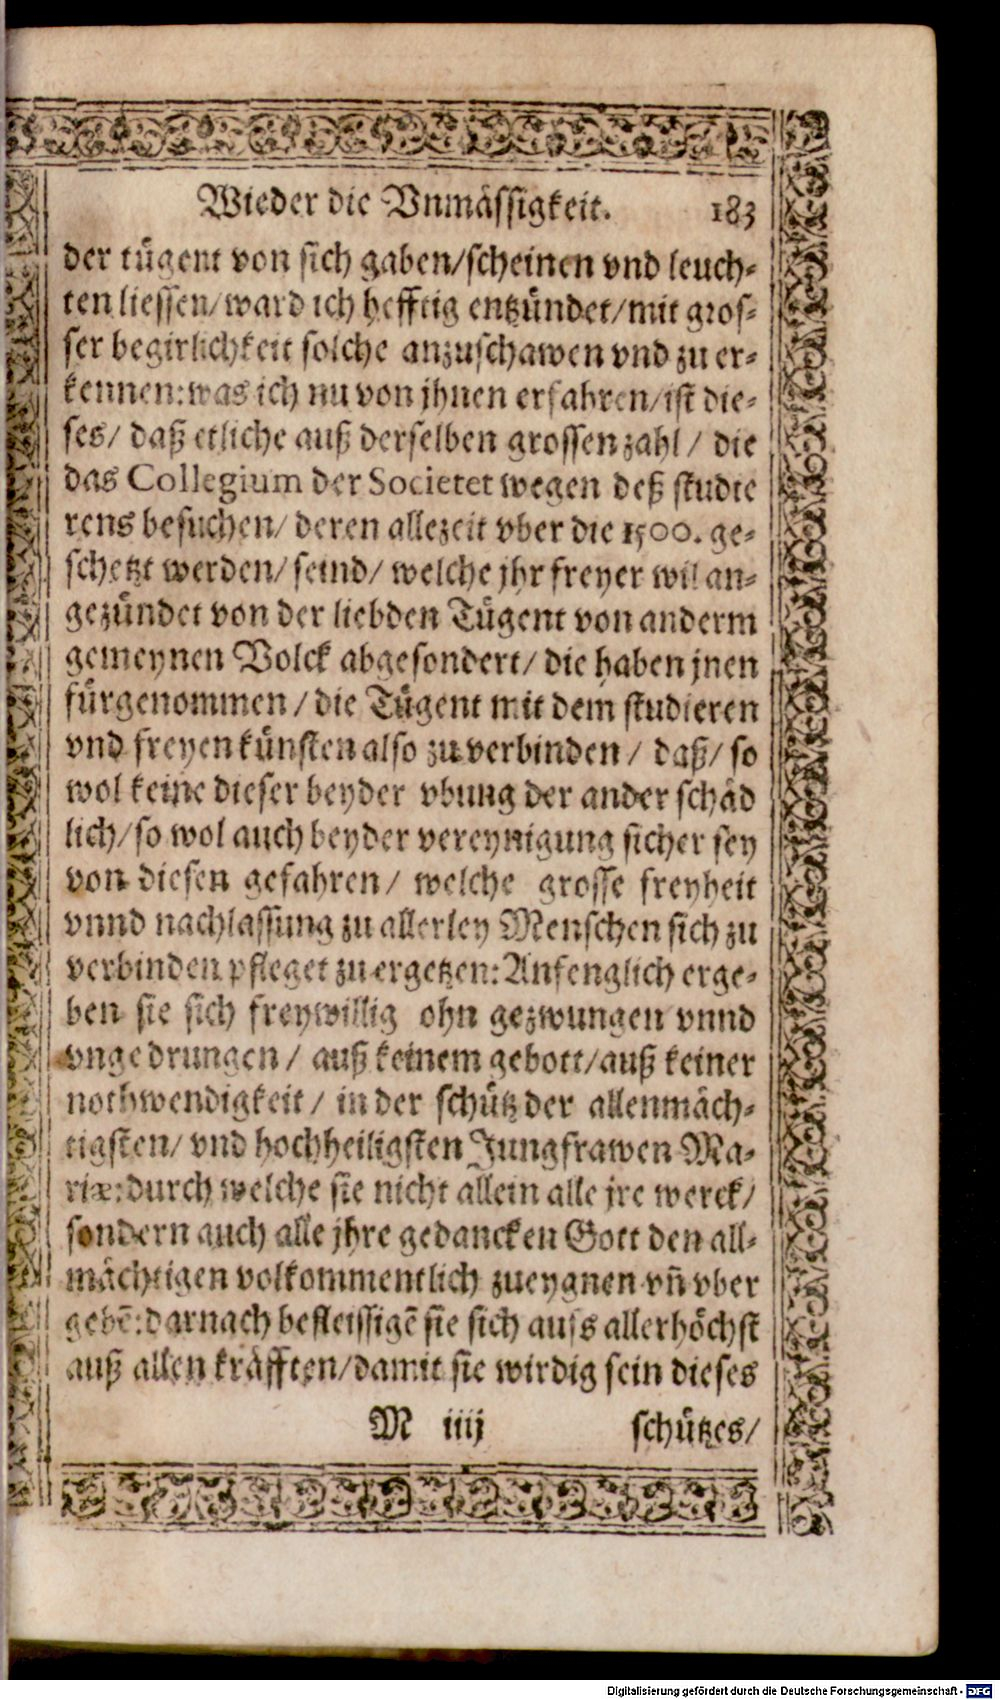 Wieder die Vnmässigkeit. 183
der tügent von sich gaben/scheinen vnd leuch-
ten liessen/ward ich hefftig entzündet/mit gros-
ser begirlichkeit solche anzuschawen vnd zu er-
kennen:was ich nu von jhnen erfahren/ist die-
ses/ daß etliche auß derselben grossen zahl/ die
das Collegium der Societet wegen deß studie
rens besuchen/ deren allezeit vber die 1500. ge-
schetzt werden/ seind/ welche jhr freyer wil an-
gezündet von der liebden Tügent von anderm
gemeynen Volck abgesondert/ die haben jnen
fürgenommen/ die Tügent mit dem studieren
vnd freyen künsten also zu verbinden/ daß/ so
wol keine dieser beyder vbung der ander schäd
lich/so wol auch beyder vereynigung sicher sey
von diesen gefahren/ welche grosse freyheit
vnnd nachlassung zu allerley Menschen sich zu
verbinden pfleget zu ergetzen: Anfenglich erge-
ben sie sich freywillig ohn gezwungen vnnd
vngedrungen/ auß keinem gebott/auß keiner
nothwendigkeit/ in der schütz der allenmäch-
tigsten/ vnd hochheiligsten Jungfrawen Ma-
riæ:durch welche sie nicht allein alle jre werck/
sondern auch alle jhre gedancken Gott den all-
mächtigen volkommentlich zueygnen vn̄ vber
gebē:darnach befleissigē sie sich aufs allerhöchst
auß allen kräfften/damit sie wirdig sein dieses
M iiij schützes/
Digitalisierung gefördert durch die Deutsche Forschungsgemeinschaft - DFG